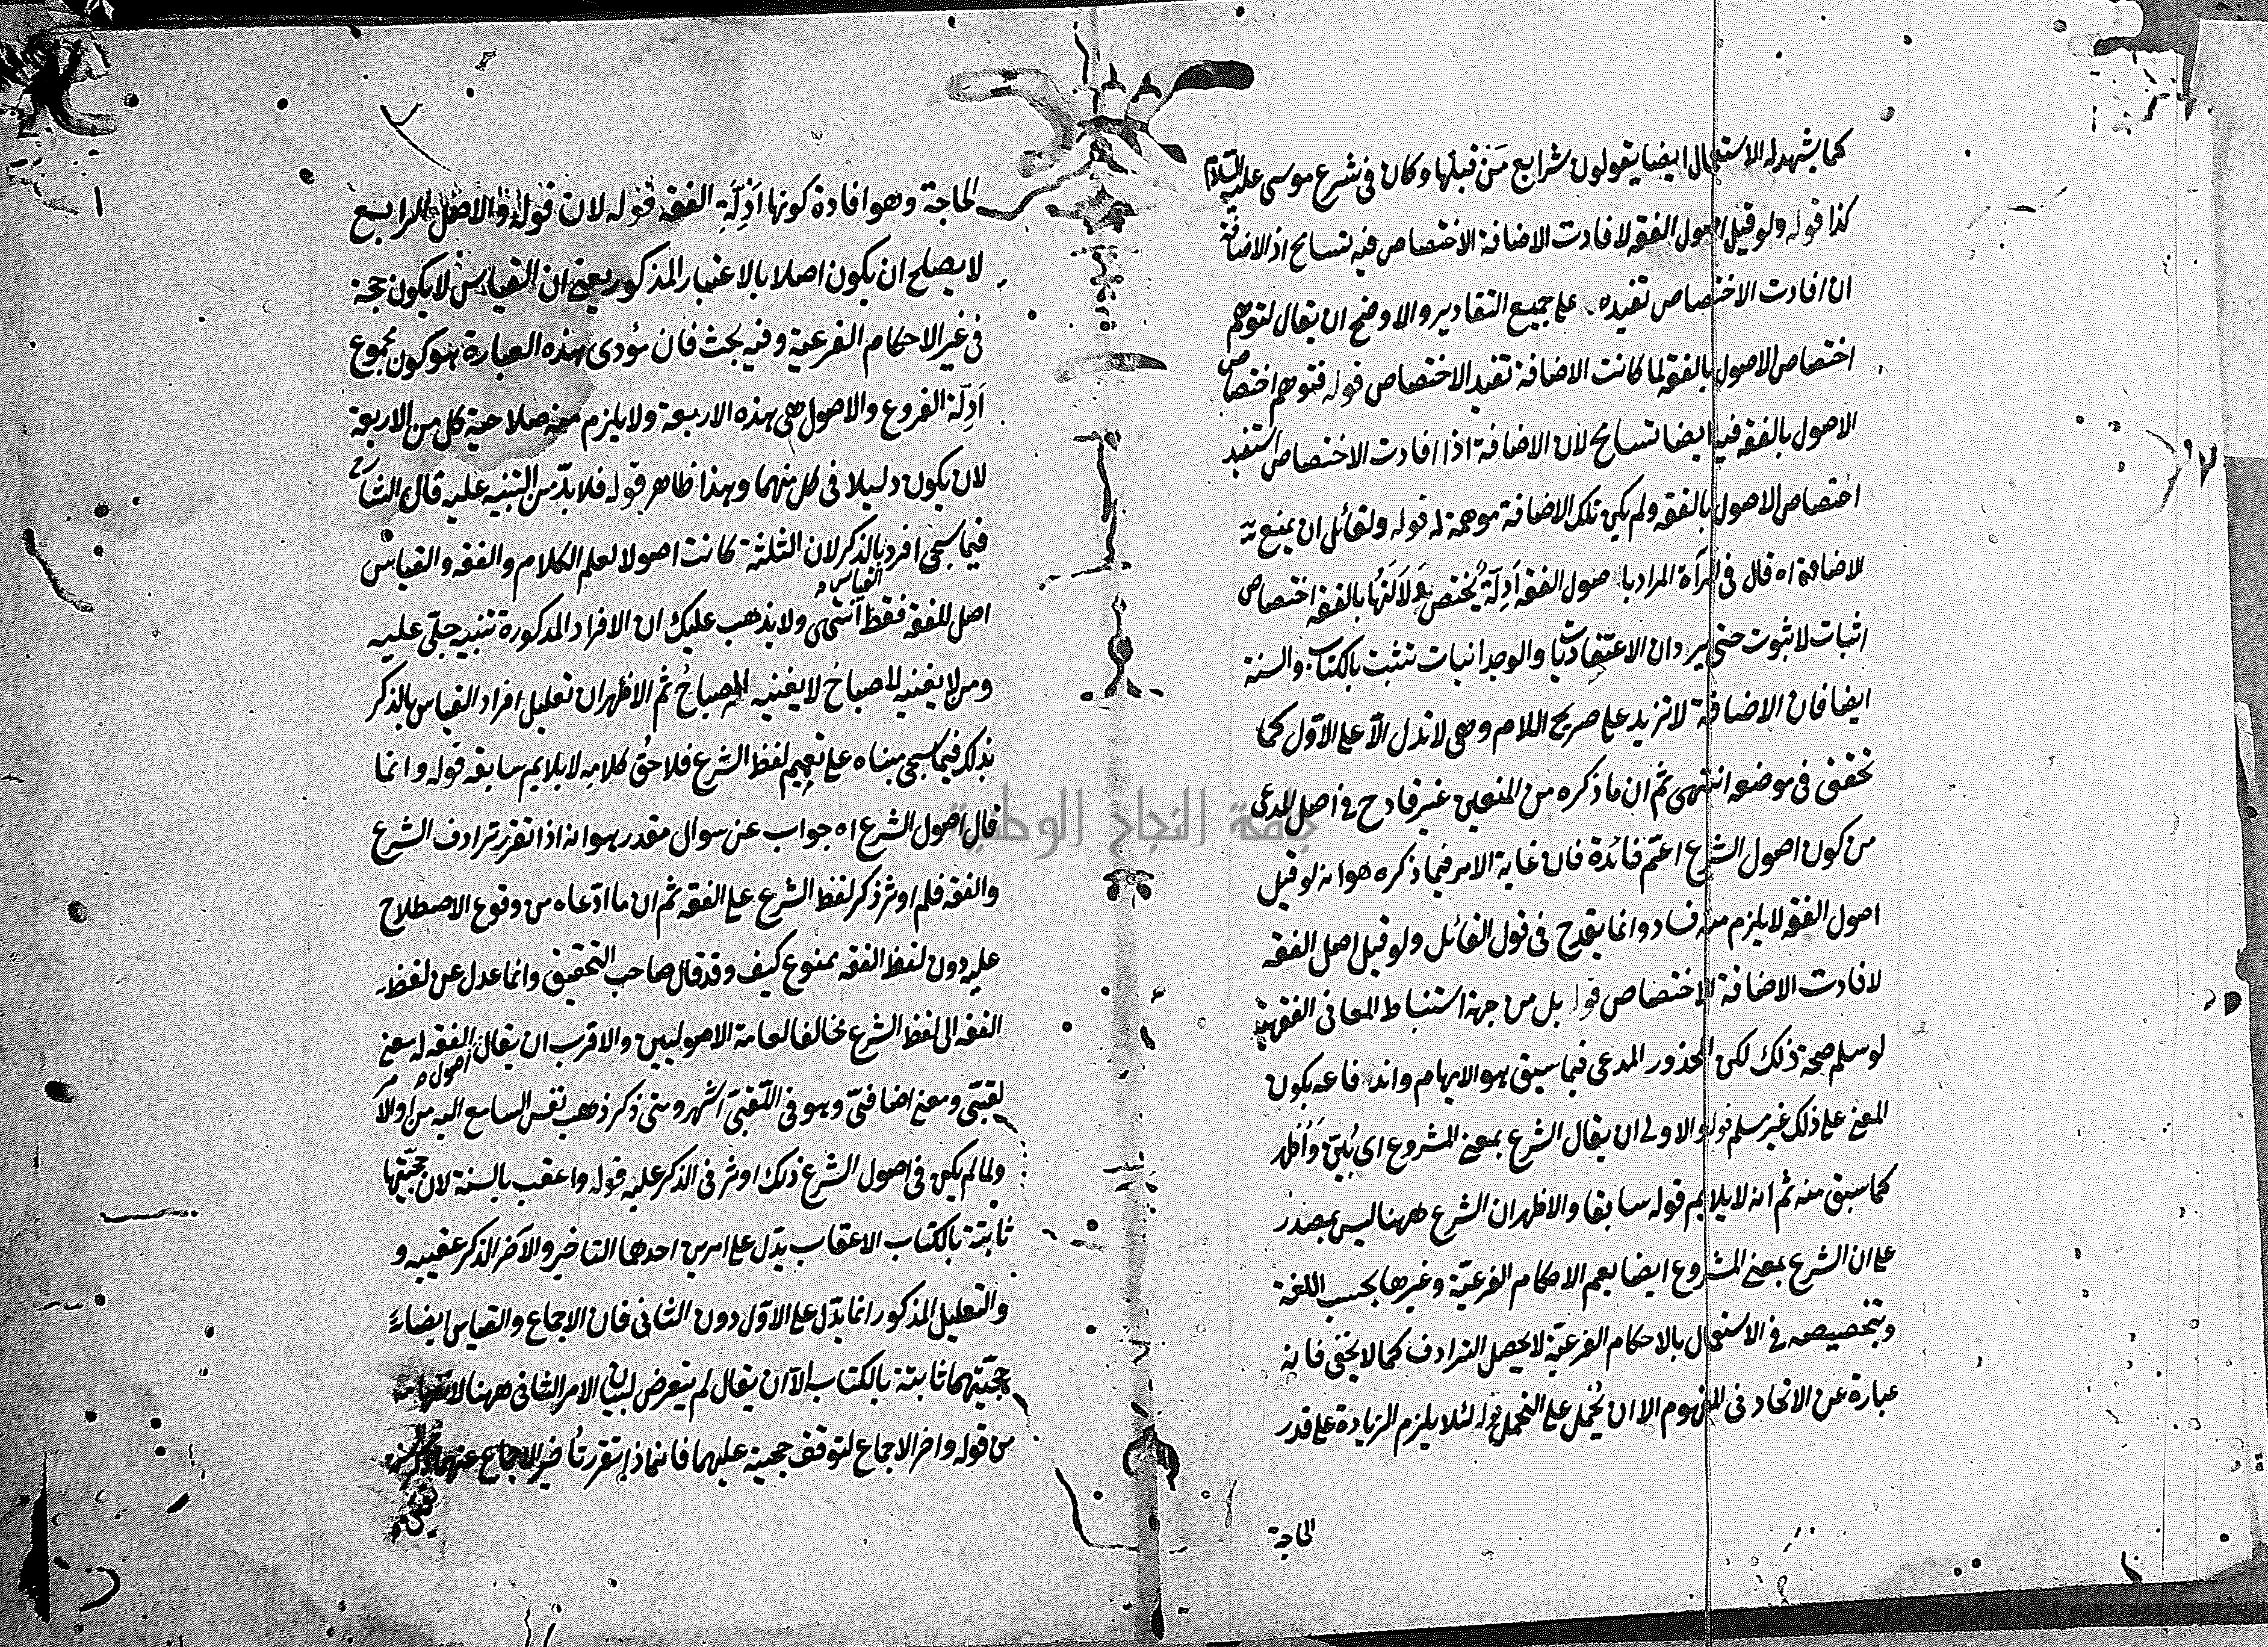 كما يشهد له الاستعمال ايضا يقولون شرايع من قبلنا وكان في شرع موسى عليه السلام
كذا قوله ولو قيل اصول الفقه لافادت الاضافة الاختصاص فيه تسامح اذ الاضافة
ان افادت الاختصاص تفيده على جميع التقادير والاوضح ان يقال لتوهم
اختصاص الاصول بالفقه لما كانت الاضافة تفيد الاختصاص قوله فتوهم اختصاص
الاصول بالفقه فيه ايضا تسامح لان الاضافة اذا افادت الاختصاص استفيد
اختصاص الاصول بالفقه ولم يكن تلك الاضافة موهمة له قوله ولقائل ان يمنع
الاضافة اه قال في المرآة المراد باصول الفقه ادلة يختص دلالتها بالفقه اختصاص
اثبات لا ثبوت حتى يرد ان الاعتقاديات والوجدانيات تثبت بالكتاب والسنة
ايضا فان الاضافة لا تزيد على صريح اللام وهى لا تدل الا على الاول كما
تحقق في موضعه انتهى ثم ان ما ذكره من المنعين غير قادح في اصل المدعى
من كون اصول الشرع اعم فائدة فان غاية الامر فيما ذكره هو انه لو قيل
اصول الفقه لا يلزم منه فساد وانما يقدح في قول القائل ولو قيل اصل الفقه
لافادت الاضافة الاختصاص قوله بل من جهة استنباط المعاني الفقهية
لو سلم صحة ذلك لكن المحذور المدعى فيما سبق هو الايهام واندفاعه بكون
المعنى على ذلك غير مسلم قوله والاولى ان يقال الشرع بمعنى المشروع اى بُيّن وأُظهر
كما سبق منه ثم انه لا يلايم قوله سابقا والاظهر ان الشرع ههنا ليس بمصدر
على ان الشرع بمعنى المشروع ايضا يعم الاحكام الفرعيّة وغيرها بحسب اللغة
وبتخصيصه في الاستعمال بالاحكام الفرعيّة لا يحصل الترادف كما لا يخفى فانه
عبارة عن الاتحاد في المفهوم الا ان يُحْمل على التحمل قوله لئلا يلزم الزيادة على قدر
الحاجة
الحاجة وهو افادة كونها ادلّة الفقه قوله لان قوله والاصل الرابع
لا يصلح ان يكون اصلا بالاعتبار المذكور يعنى ان القياس لا يكون حجة
في غير الاحكام الفرعية وفيه بحث فان مؤدى هذه العبارة هو كون مجموع
ادلّة الفروع والاصول هى هذه الاربعة ولا يلزم منه صلاحية كل من الاربعة
لان يكون دليلا في كل منهما وهذا ظاهر قوله فلا بدّ من التنبيه عليه قال الشارح
فيما سيجى افرد بالذكر لان الثلثة كانت اصولا لعلم الكلام والفقه والقياس
اصل للفقه فقط انتهى ولا يذهب عليك ان الافراد المذكورة تنبيه جلّى عليه
ومن لا يغنيه المصباح لا يغنيه المصباحُ ثم الاظهر ان تعليل افراد القياس بالذكر
بذلك فيما سيجى مبناه على تعميم لفظ الشرع فلاحق كلامه لا يلايم سابقه قوله وانما
قال اصول الشرع اه جواب عن سوال مقدر هو انه اذا تقرر ترادف الشرع
والفقه فلم اوثر ذكر لفظ الشرع على الفقه ثم ان ما ادّعاه من وقوع الاصطلاح
عليه دون لفظ الفقه ممنوع كيف وقد قال صاحب التحقيق وانما عدل عن لفظ
الفقه الى لفظ الشرع مخالفا لعامة الاصوليين والاقرب ان يقال اصول الفقه له معنى
لقبّى ومعنى اضافىّ وهو في اللّقبىّ اشهر ومتى ذكر ذهب نفس السامع اليه من اوالامر
ولما لم يكن في اصول الشرع ذلك اوثر في الذكر عليه قوله واعقب بالسنة لان حجيّتها
ثابتة بالكتاب الاعقاب يدّل على امرين احدهما التاخير والآخر الذكر عقيبه و
والتعليل المذكور انما يدّل على الاوّل دون الثانى فان الاجماع والقياس ايضا
حجيّتهما ثابتة بالكتاب الاّ ان يقال لم يتعرض لبيان الامر الثانى ههنا
من قوله واخر الاجماع لتوقف حجية عليهما فانما اذا تقرر تأخير الاجماع عنهما